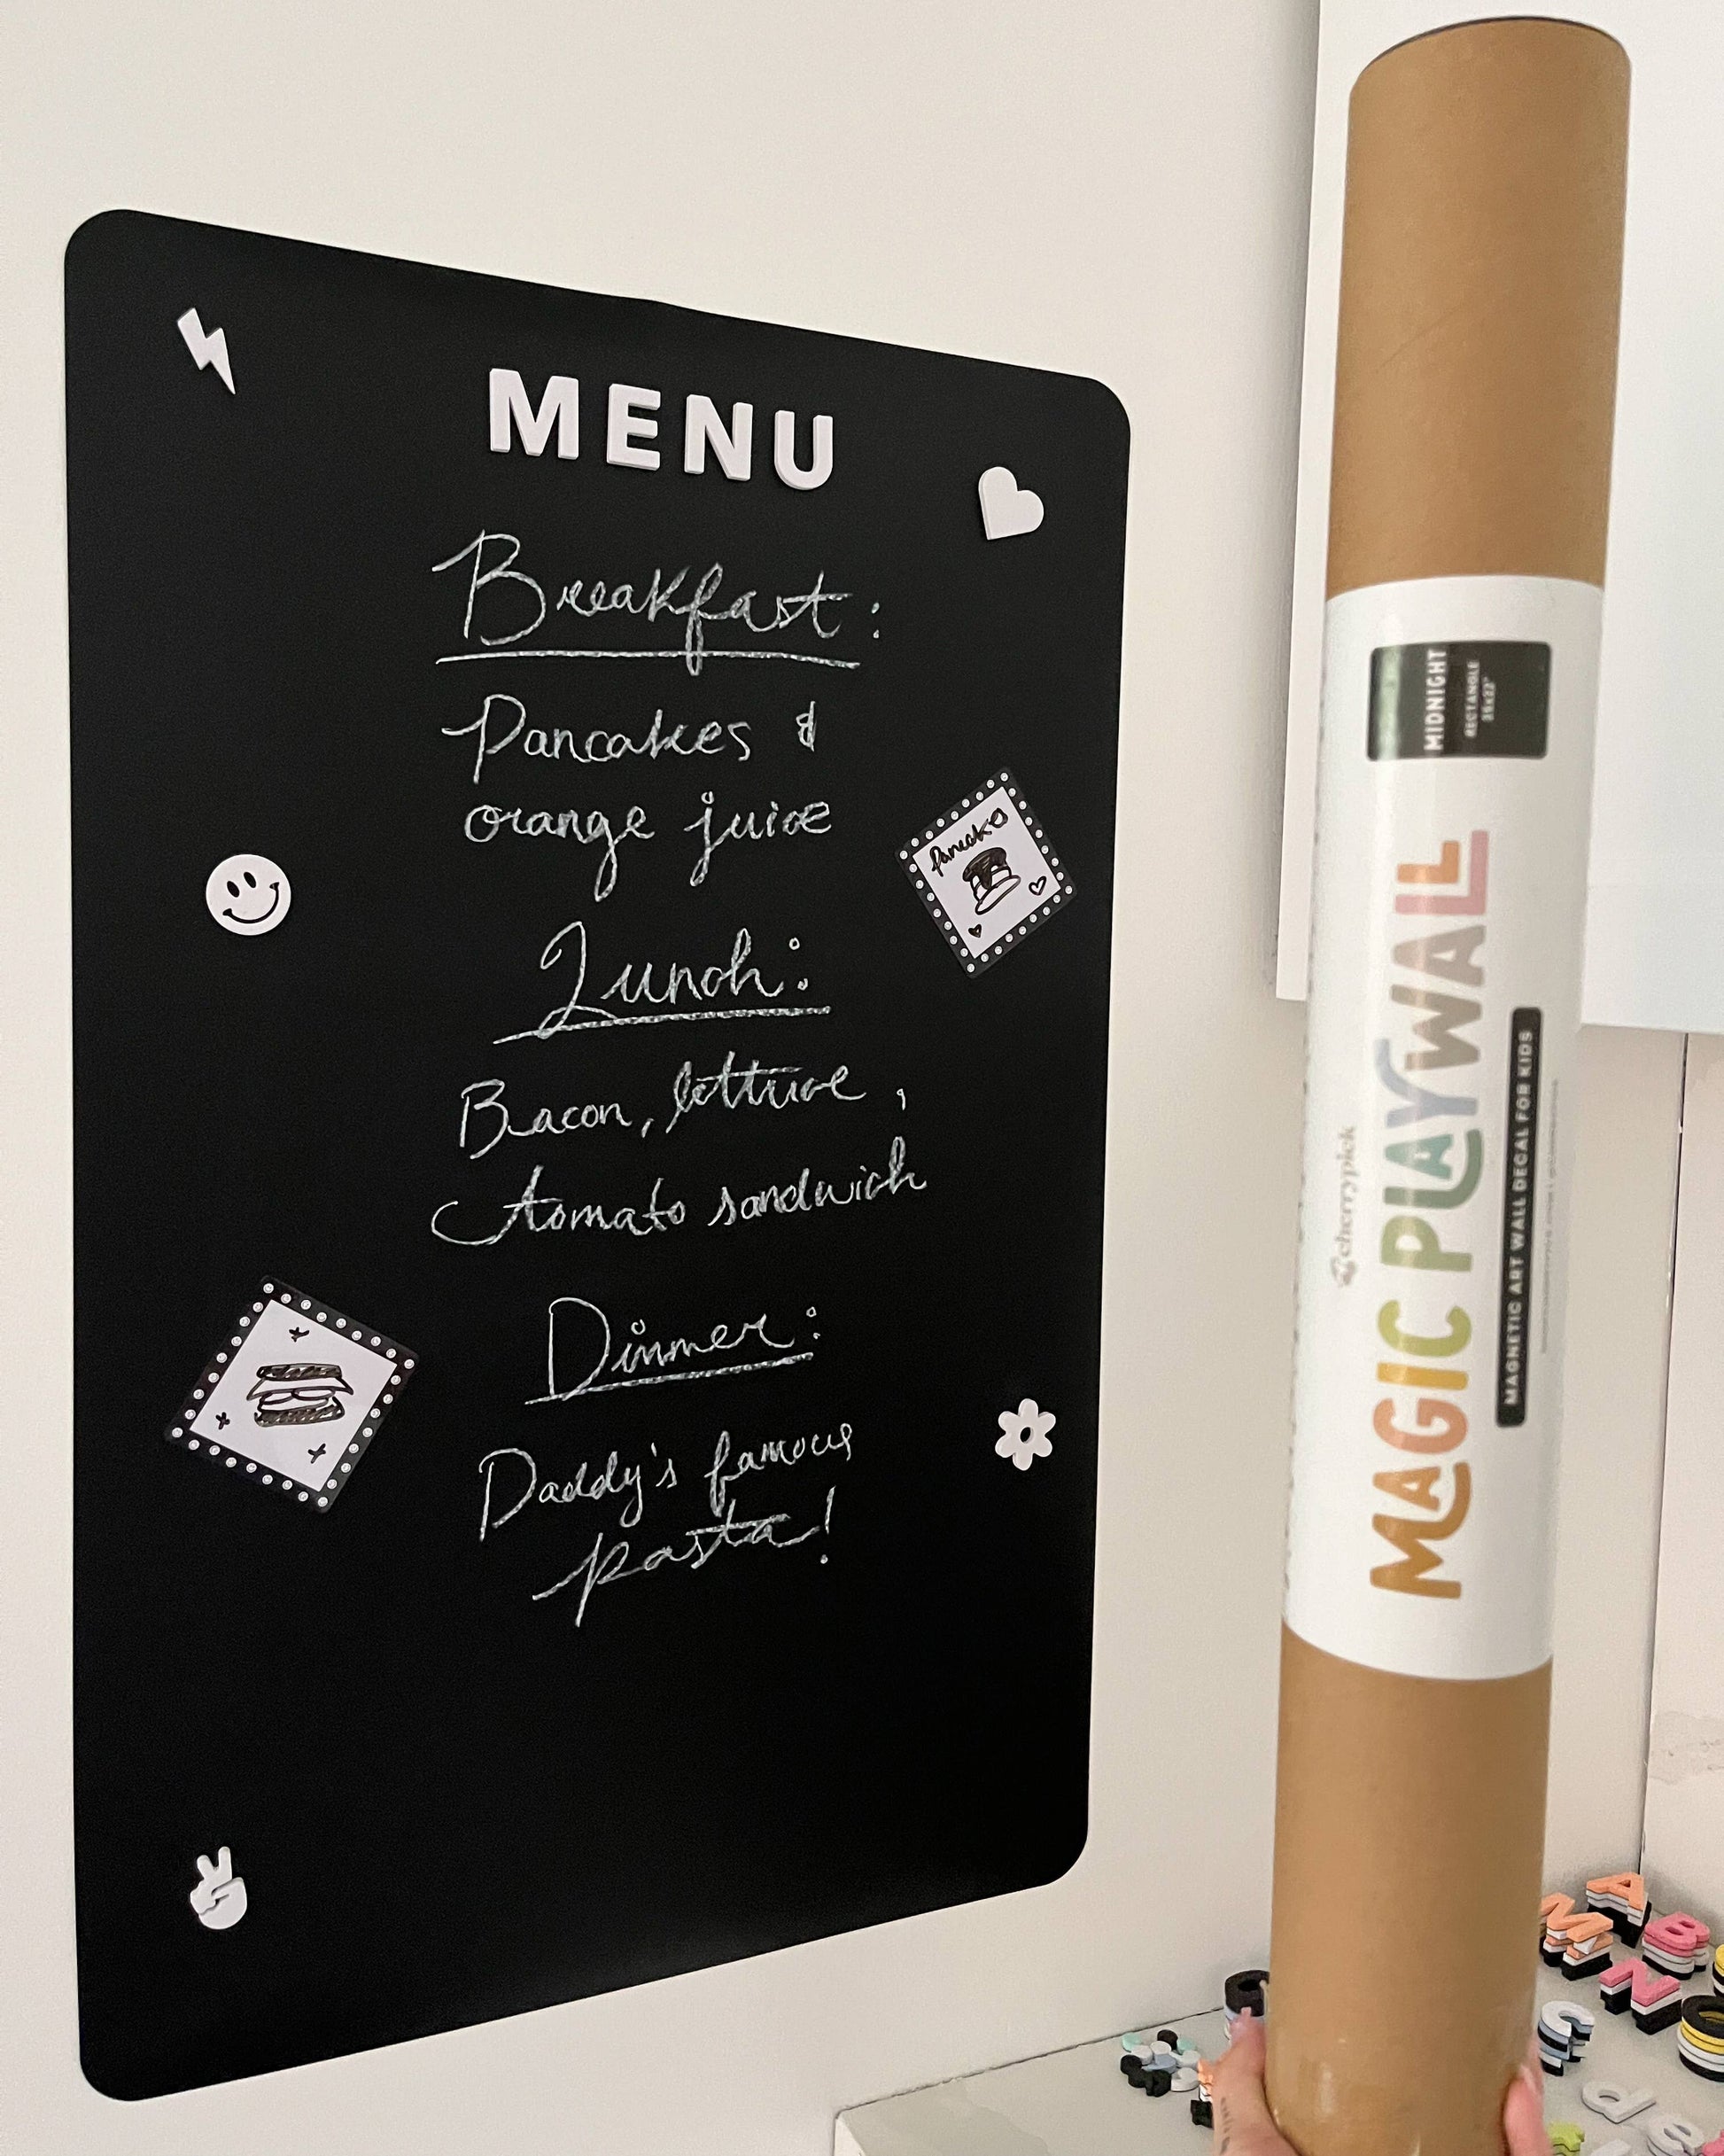 MENU
Breakfast:
Pancakes &
orange juice
Pancakes
Lunch:
Bacon, lettuce,
tomato sandwich
Dinner:
Daddy's famous
pasta!
MIDNIGHT
RECTANGLE
cherrypick
MAGIC PLAYWALL
MAGNETIC ART WALL DECAL FOR KIDS
A
M B
N
C
d e